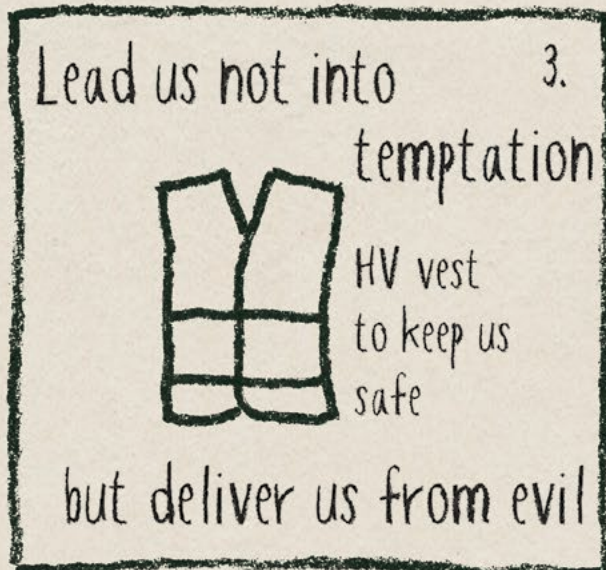 Lead us not into 3.
temptation
HV vest
to keep us
safe
but deliver us from evil